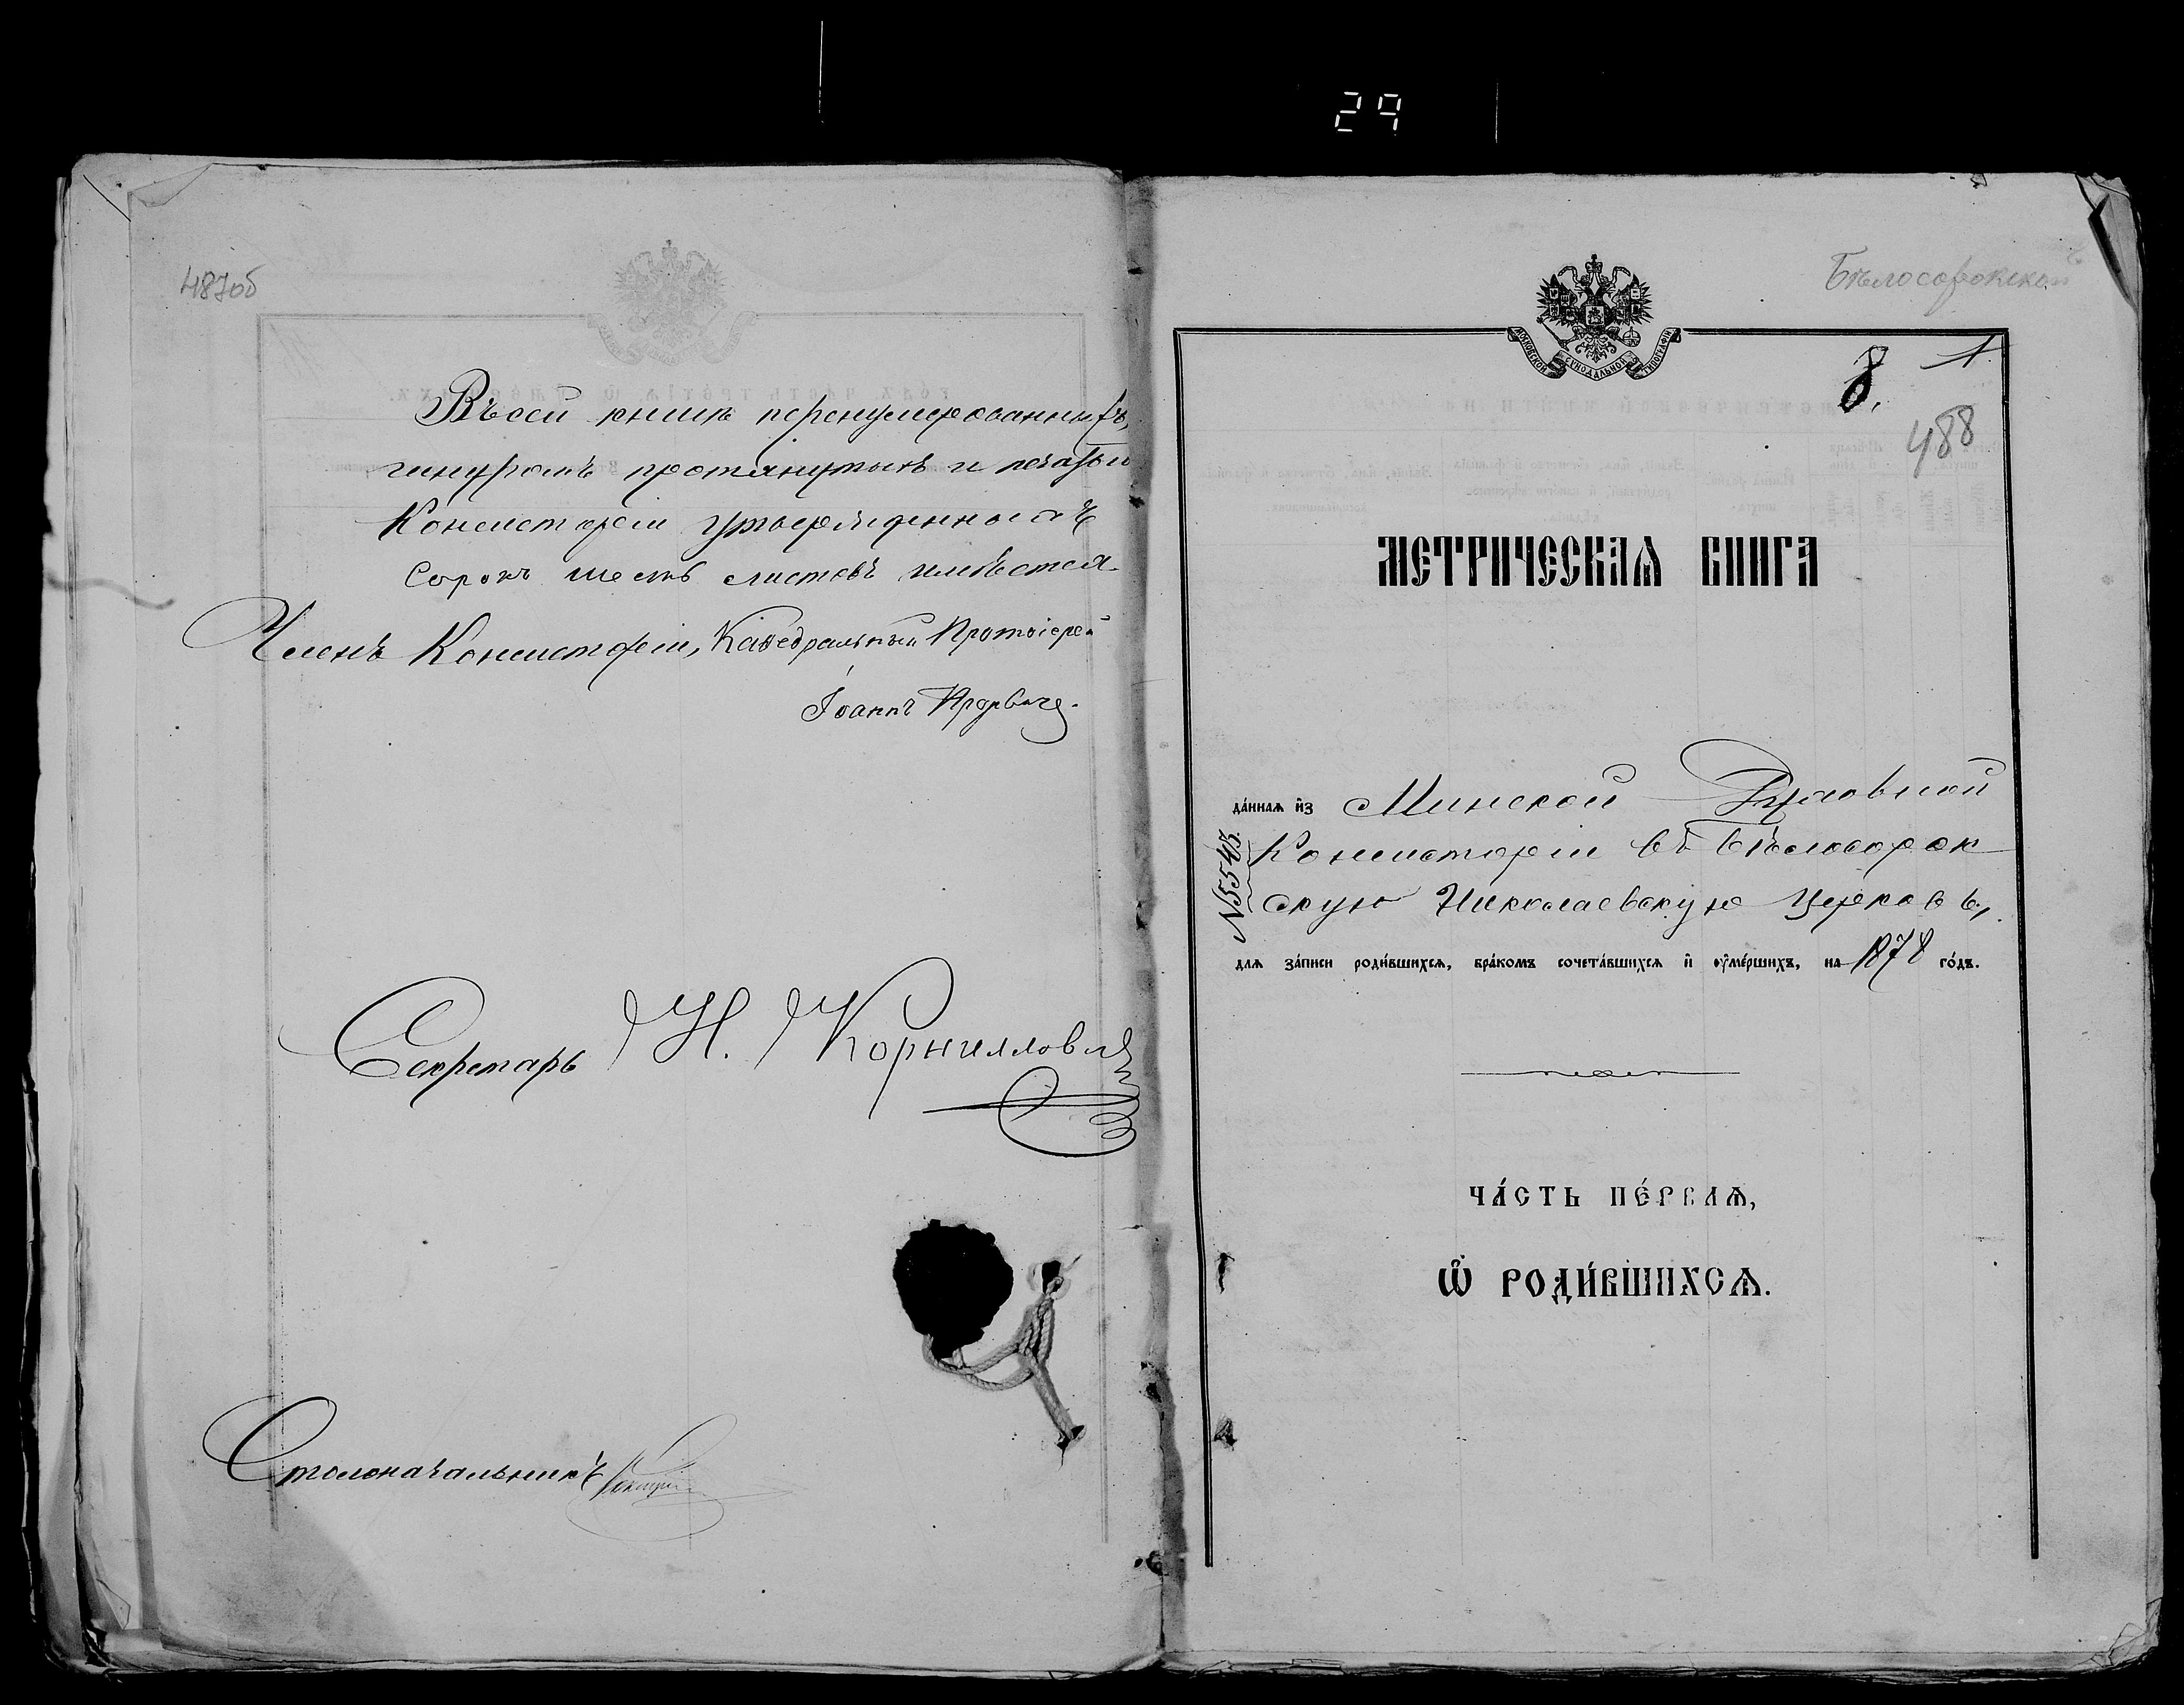 29
487об
Въ сей книгѣ перенумерованныхъ,
шнуромъ протянутыхъ и печатью
Консисторіи утвержденныхъ
сорокъ шесть листовъ имѣется.
Членъ Консисторіи, Каѳедральный Протоіерей
Іоаннъ
Секретарь Н. Корниллов
Столоначальникъ
Бѣлосорокской
МОСКОВСКОЙ СУНОДАЛЬНОЙ ТИПОГРАФІИ
8. 1
488
МЕТРИЧЕСКАѦ КНИГА
да́ннаѧ и҆з Минской Духовной
№ 5543. Консисторіи въ Бѣлосорок
скую Николаевскую Церковь,
длѧ за́писи роди́вшихсѧ, бра́комъ сочета́вшихсѧ и҆ оу҆ме́ршихъ, на 1878 го́дъ.
ЧА́СТЬ ПЕ́РВАѦ,
Ѡ҆ РОДИ́ВШИХСѦ.